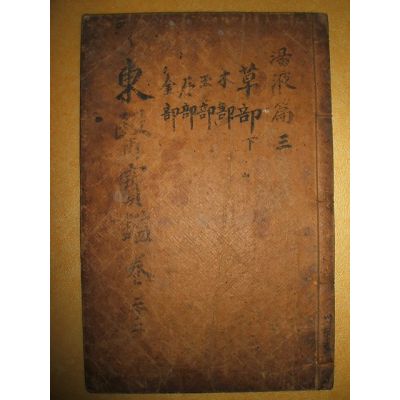 湯液篇 三
草部 下
木部
玉部
石部
金部
東醫寶鑑